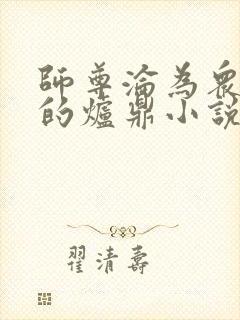 師尊淪為衆
的爐鼎小說
翟清壽